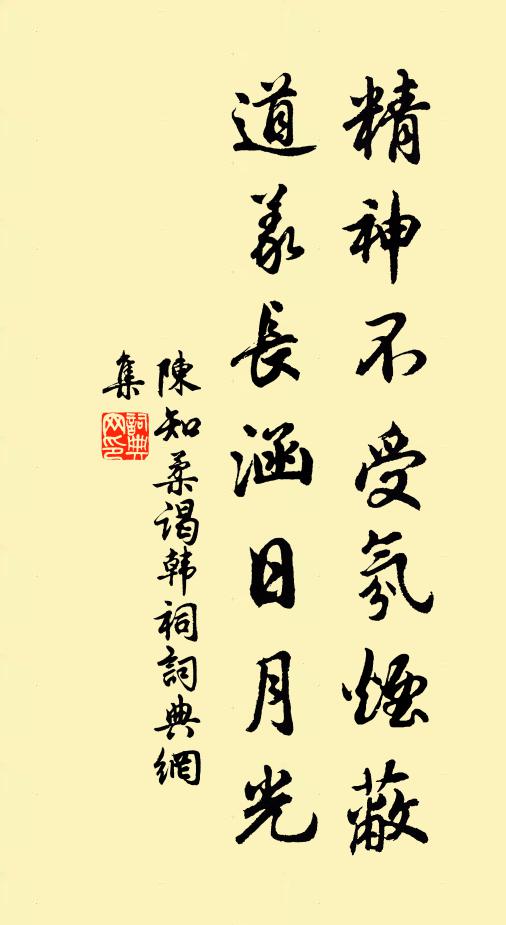 精神不受氛煙蔽
道義長涵日月光
陳知柔謁韩祠詞典網
集
詞典
网印